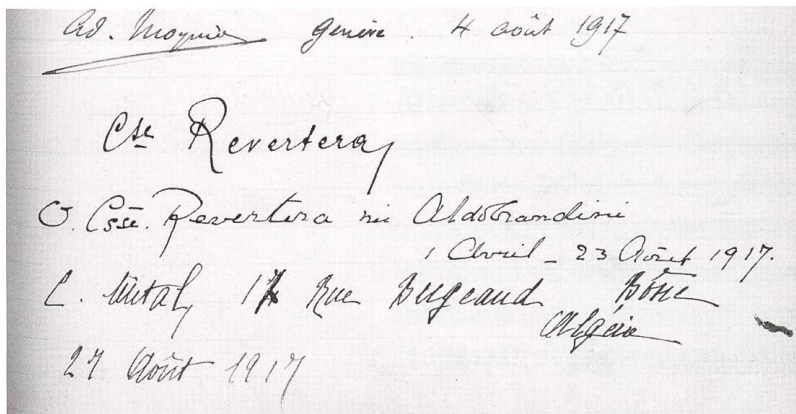 Ad. Moynier Genève. 4 août 1917
Cte Revertera
O. Csse. Revertera née Aldobrandini
1 Avril - 23 Août 1917.
C. 17 Rue Bugeaud Bône
Algérie
27 Août 1917